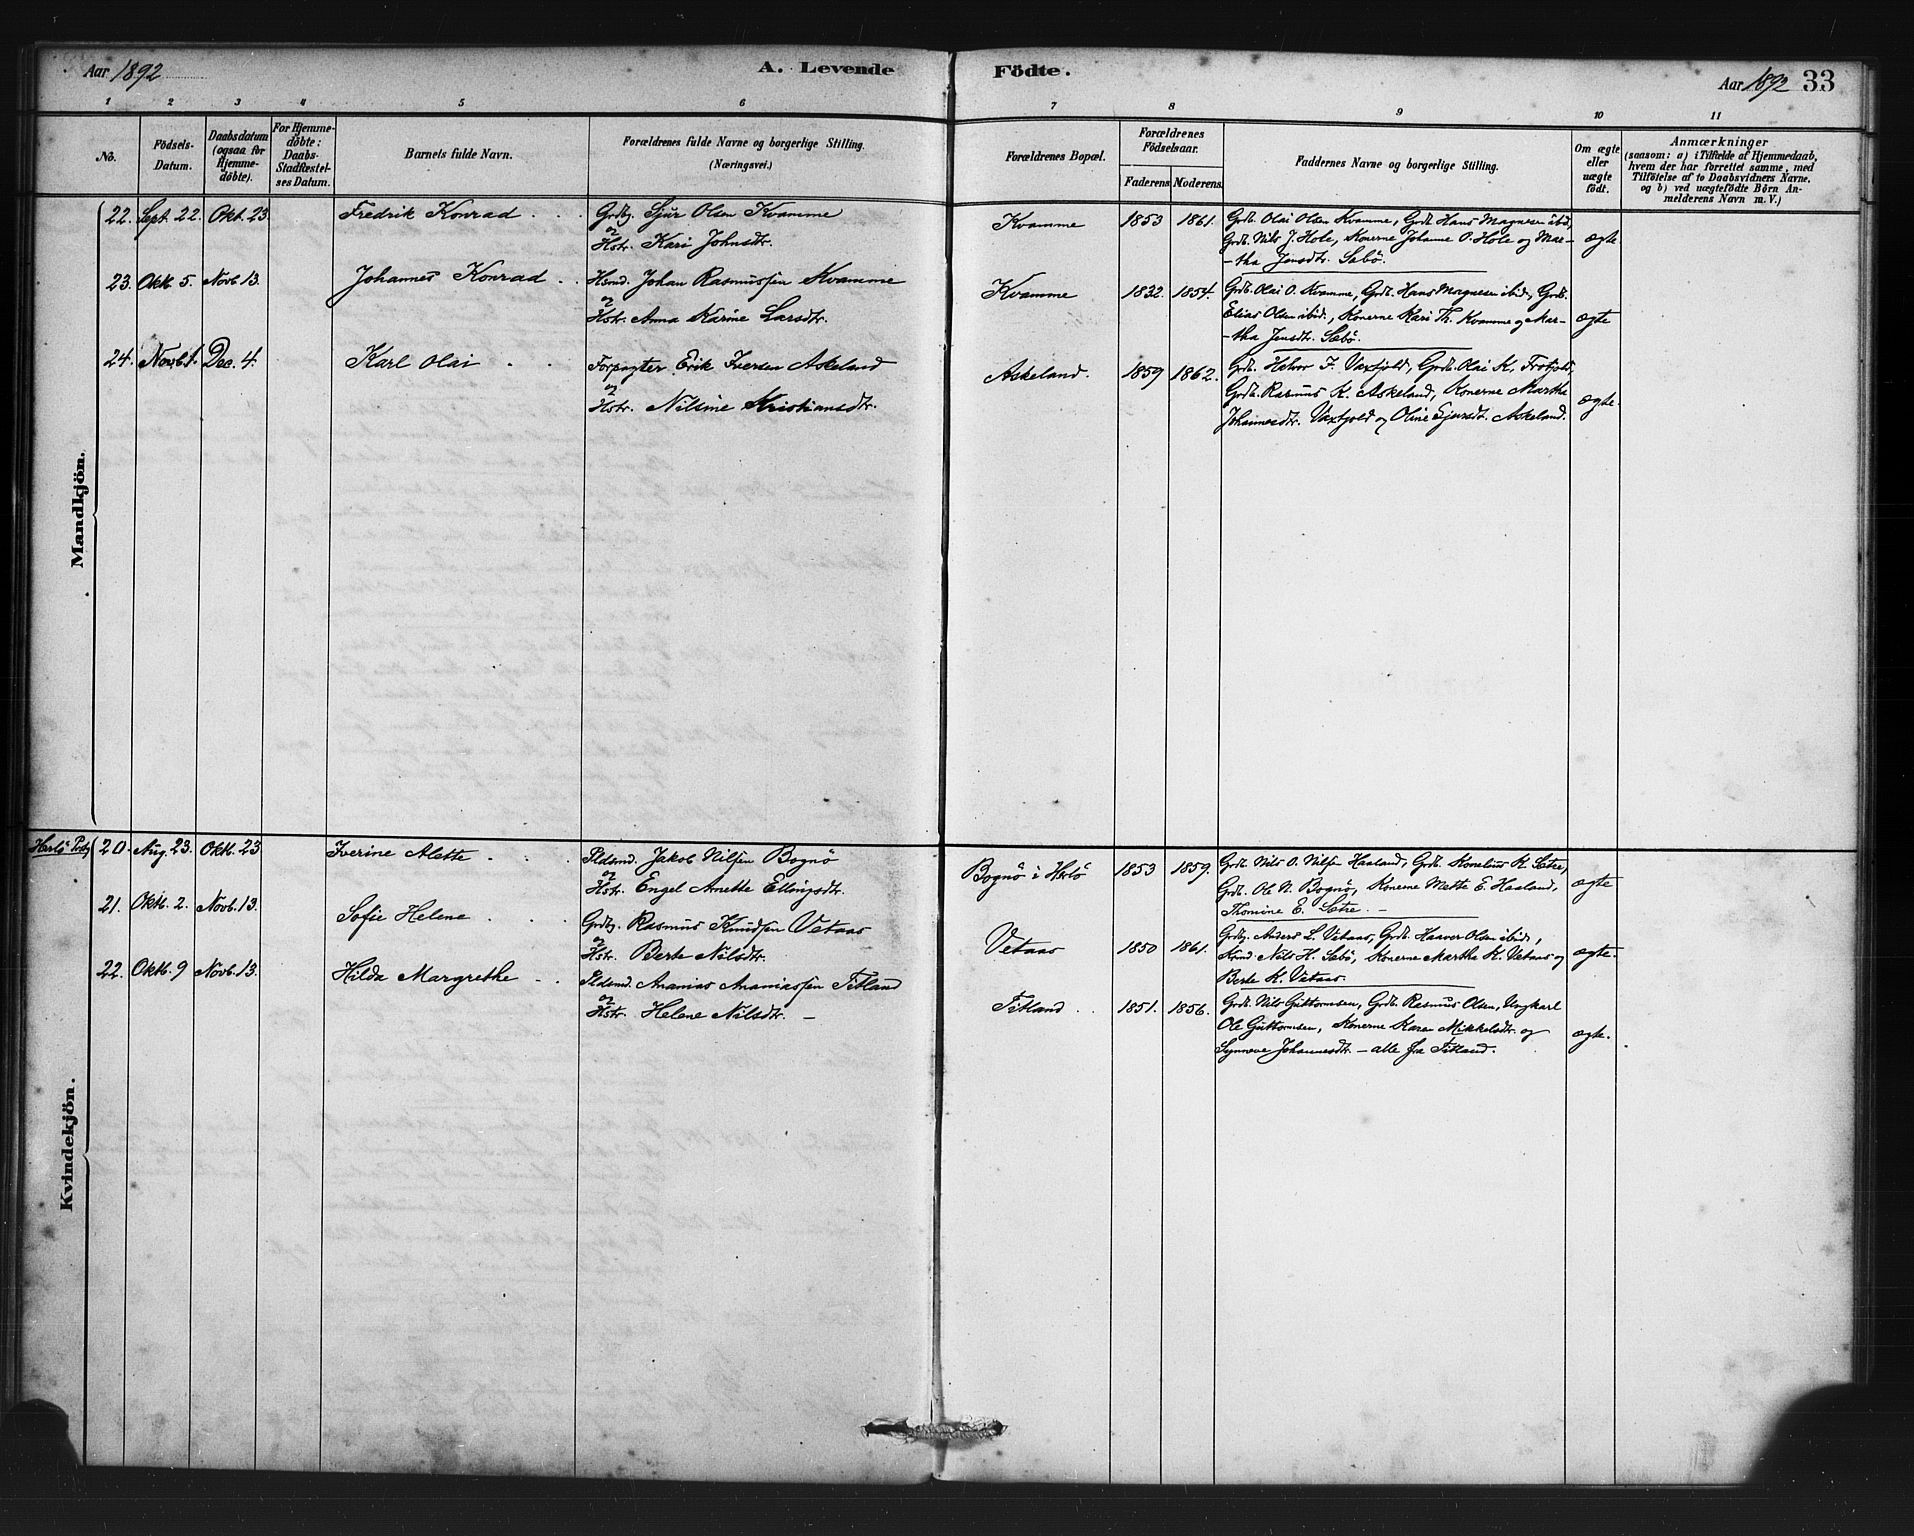 Aar 1892
A. Levende Födte.
Aar 1892 33
1 2 3 4 5 6 7 8 9 10 11
No.
Födsels-Datum.
Daabsdatum (ogsaa for Hjemme-döbte).
For Hjemme-döbte: Daabs-Stadfæstel-ses Datum.
Barnets fulde Navn.
Forældrenes fulde Navne og borgerlige Stilling.
(Næringsvei.)
Forældrenes Bopæl.
Forældrenes Födselsaar.
Faderens Moderens.
Faddernes Navne og borgerlige Stilling.
Om ægte eller uægte födt.
Anmærkninger
(saasom: a) i Tilfælde af Hjemmedaab,
hvem der har forrettet samme, med
Tilföielse af to Daabsvidners Navne,
og b) ved uægtefödte Börn An-
melderens Navn m. V.)
Mandkjön.
22. Sept. 22. Okt. 23 Fredrik Konrad Grdbr. Sjur Olsen Kvamme
og
Hstr. Kari Johnsdtr.
Kvamme 1853 1861.
Grdb. Olai Olsen Kvamme, Grdb. Hans Magnesen ibid,
Grdb. Nils J. Hole, Konerne Johanne O. Hole og Mar-
-tha Jensdtr. Sæbö.
ægte
23. Oktb. 5. Novb. 13. Johannes Konrad Hsmd. Johan Rasmussen Kvamme
og
Hstr. Anna Karine Larsdtr.
Kvamme 1832. 1854.
Grdb. Olai O. Kvamme, Grdb. Hans Magnesen ibid, Grdb.
Elias Olsen ibid., Konerne Kari Th. Kvamme og Mar-
-tha Jensdtr. Sæbö.
ægte
24. Novb. 1. Dec. 4. Karl Olai Forpagter Erik Iversen Askeland
og
Hstr. Nilsine Kristiansdtr.
Askeland. 1859 1862.
Grdb. Helvor I. Vaxtjold, Grdb. Olai K. Frotjold,
Grdb. Rasmus K. Askeland, Konerne Martha
Johannesdtr. Vaxtjold og Oline Ejersdt. Askeland.
ægte.
Kvindekjön.
Herlö
20. Aug. 23. Oktb. 23 Iverine Alette Pldsmd. Jakob Nilsen Bognö
og
Hstr. Engel Anette Ellingsdtr.
Bognö i Herlö 1853 1859.
Grdb. Nils O. Nilsen Haaland, Grdb. Kornelius K. Sætre,
Grdb. Ole N. Bognö, Konerne Mette E. Haaland,
Thomine E. Sætre. -
ægte
21. Oktb. 2. Novb. 13. Sofie Helene Grdbr. Rasmus Knudsen Vetaas
og
Hstr. Berte Nilsdtr.
Vetaas 1850 1861.
Grdbr. Anders L. Vetaas, Grdb. Haaver Olsen ibid,
Nils H. Sæbö, Konerne Martha K. Vetaas og
Berte K. Vetaas.
ægte.
22. Oktb. 9 Novb. 13. Hilda Margrethe Pldsmd. Ananias Ananiassen Titland
og
Hstr. Helene Nilsdtr. -
Titland 1851. 1856.
Grdb. Nils Guttormsen, Grdb. Rasmus Olsen, Ungkarl
Ole Guttormsen, Konerne Karen Mikkelsdtr. og
Synneve Johannesdtr. - alle fra Titland.
ægte.